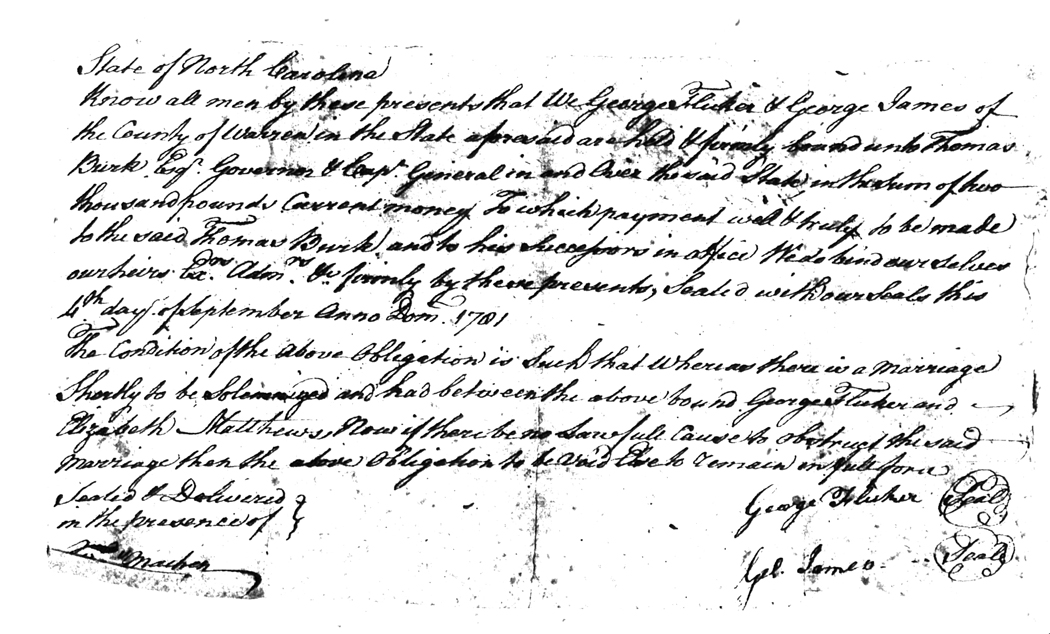 State of North Carolina
Know all men by these presents that We George Fluker & George James of
the County of Warren in the State aforesaid are held & firmly bound unto Thomas
Burk Esqr. Governor & Capn General in and Over the said State in the sum of two
thousand pounds Current money To which payment well & truly to be made
to the said Thomas Burk and to his Successors in office We do bind our selves
our heirs Exrs. Admrs. &c. firmly by these presents, Sealed with our Seals this
4th day of September Anno Dom. 1781
The Condition of the above Obligation is Such that Whereas there is a Marriage
Shortly to be Solemnized and had between the above bound George Fluker and
Elizabeth Matthews, Now if there be no Lawfull Cause to Obstruct the said
Marriage then the above Obligation to be Void Else to remain in full force
Sealed & Delivered
in the presence of
George Fluker Seal
Machen
James Seal